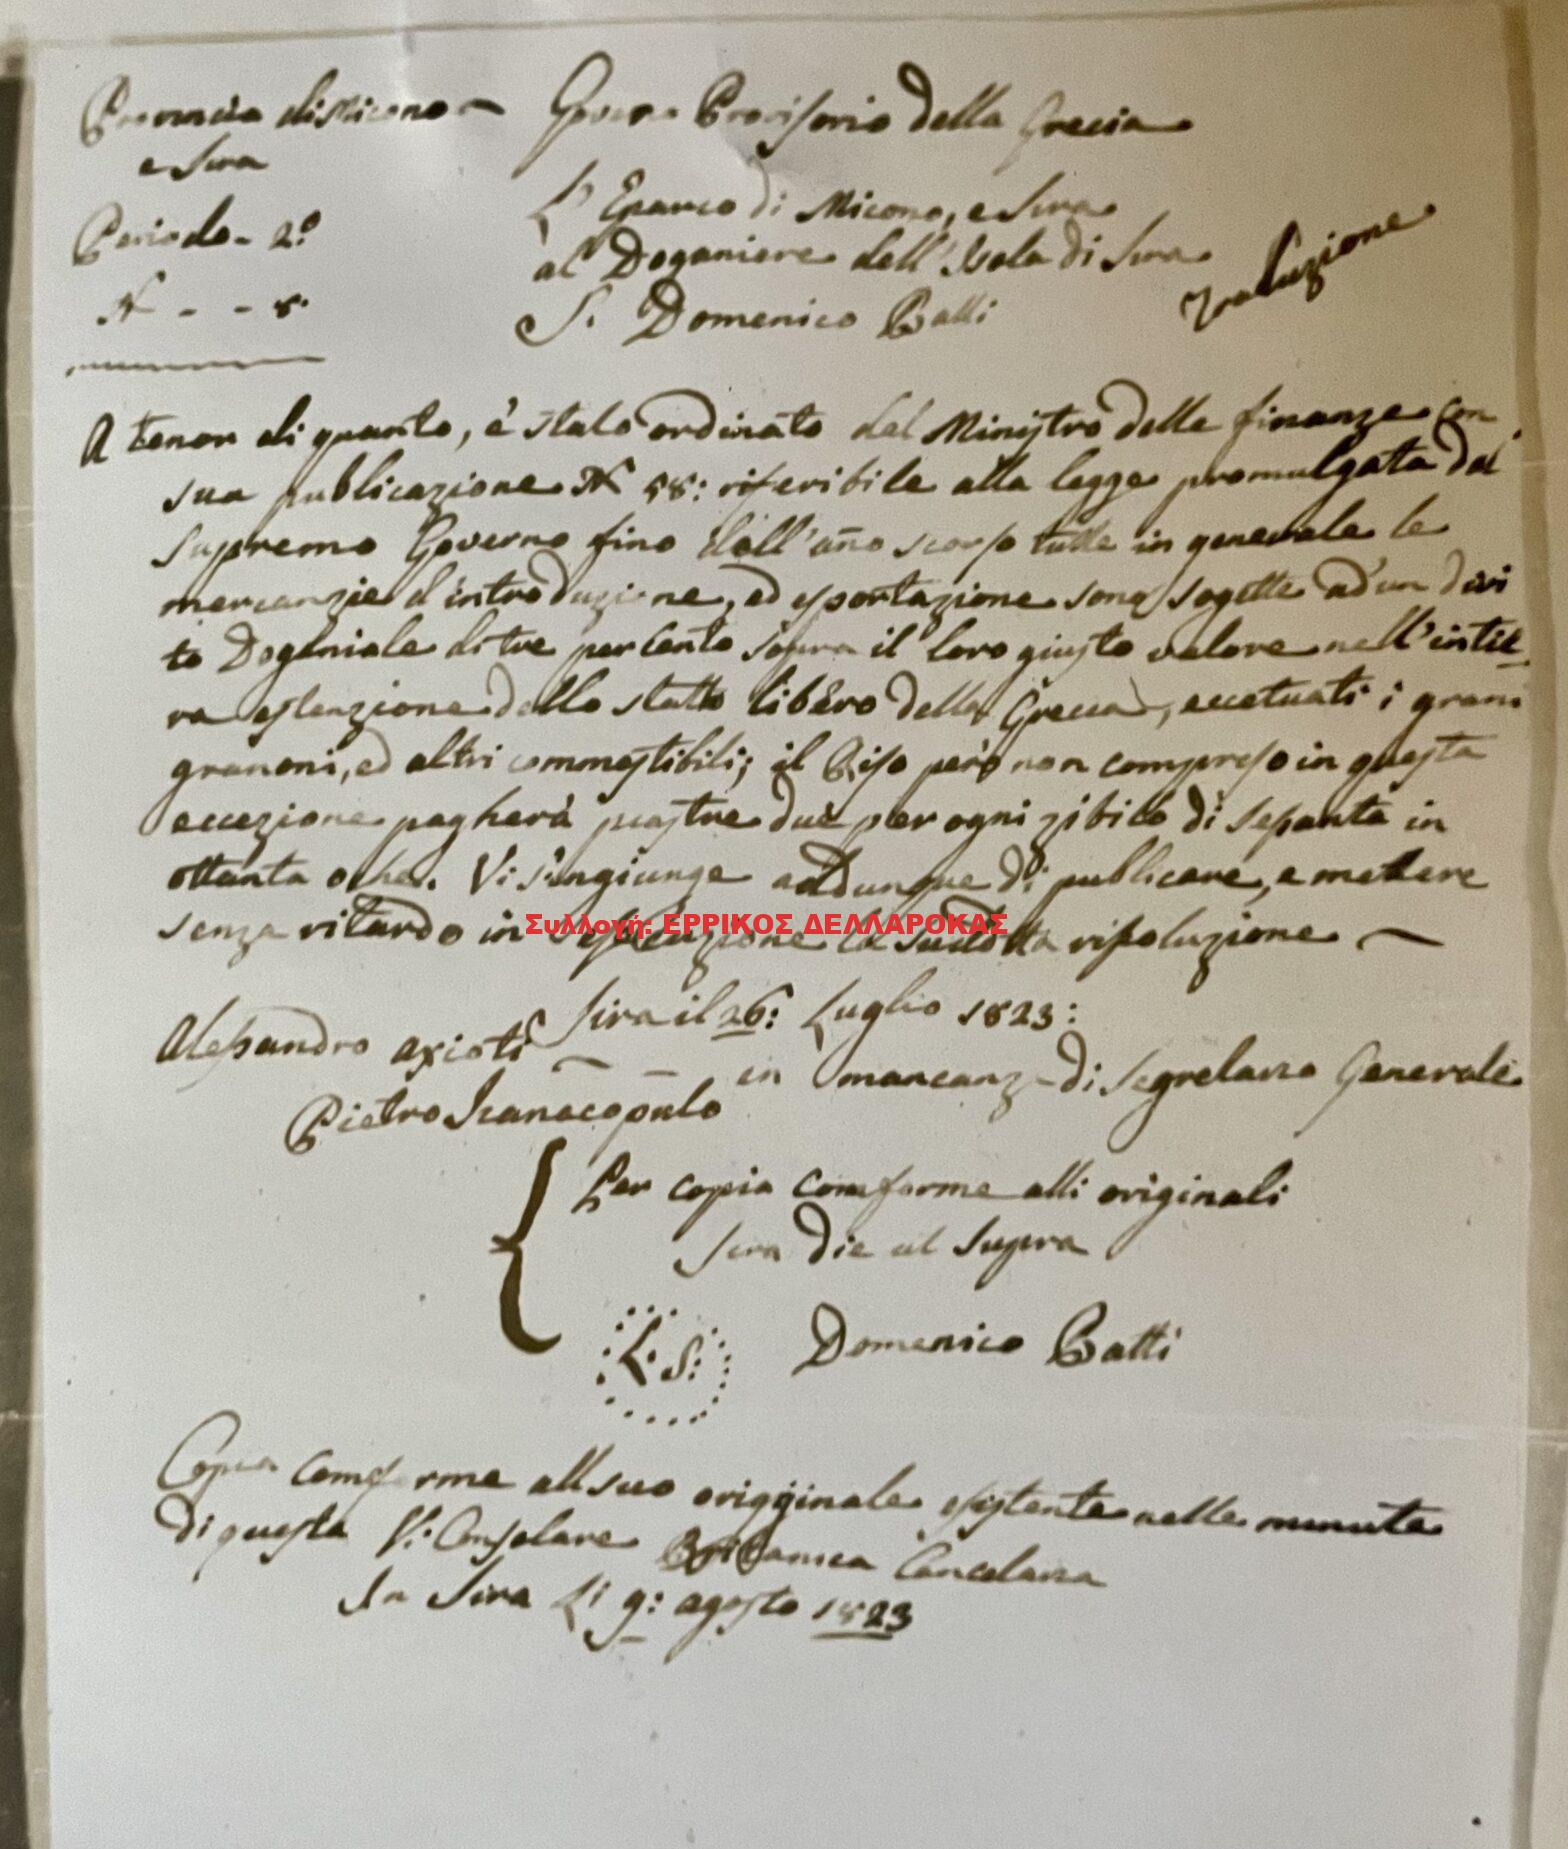 Provincia di Micono Governo Provisorio della Grecia
e Sira
L'Eparco di Micono, e Sira
Periodo - 2º
al Doganiere dell'Isola di Sira
Traduzione
N - - 8:
S. Domenico Batti
A tenor di quanto, è stato ordinato dal Ministro delle finanze con
sua publicazione N 58: riferibile alla legge promulgata dal
Supremo Governo fino dall'año scorso tutte in generale le
mercanzie d'introduzione, ed esportazione sono sogette ad un diri
to Doganiale di tre per Cento sopra il loro giusto valore nell'intie
ra estenzione dello statto libero della Grecia, eccetuati i grani
granoni, ed altri commestibili; il Riso però non compreso in questa
eccezione pagherà piastre due per ogni zibilo di sepanta in
ottanta oche. Vi s'ingiunge addunque di publicare, e mettere
senza ritardo in essecuzione la sudotta risoluzione
Συλλογή: ΕΡΡΙΚΟΣ ΔΕΛΛΑΡΟΚΑΣ
Sira il 26: Luglio 1823:
Alessandro Axioti - in mancanza di Segretario Generale
Pietro
Per copia comforme alli originali
Sira Die ut Supra
L. S: Domenico Batti
Copia comforme all suo origginale esistente nelle minute
di questa V: Consolare Britanica Cancelaria
In Sira Li 9: agosto 1823